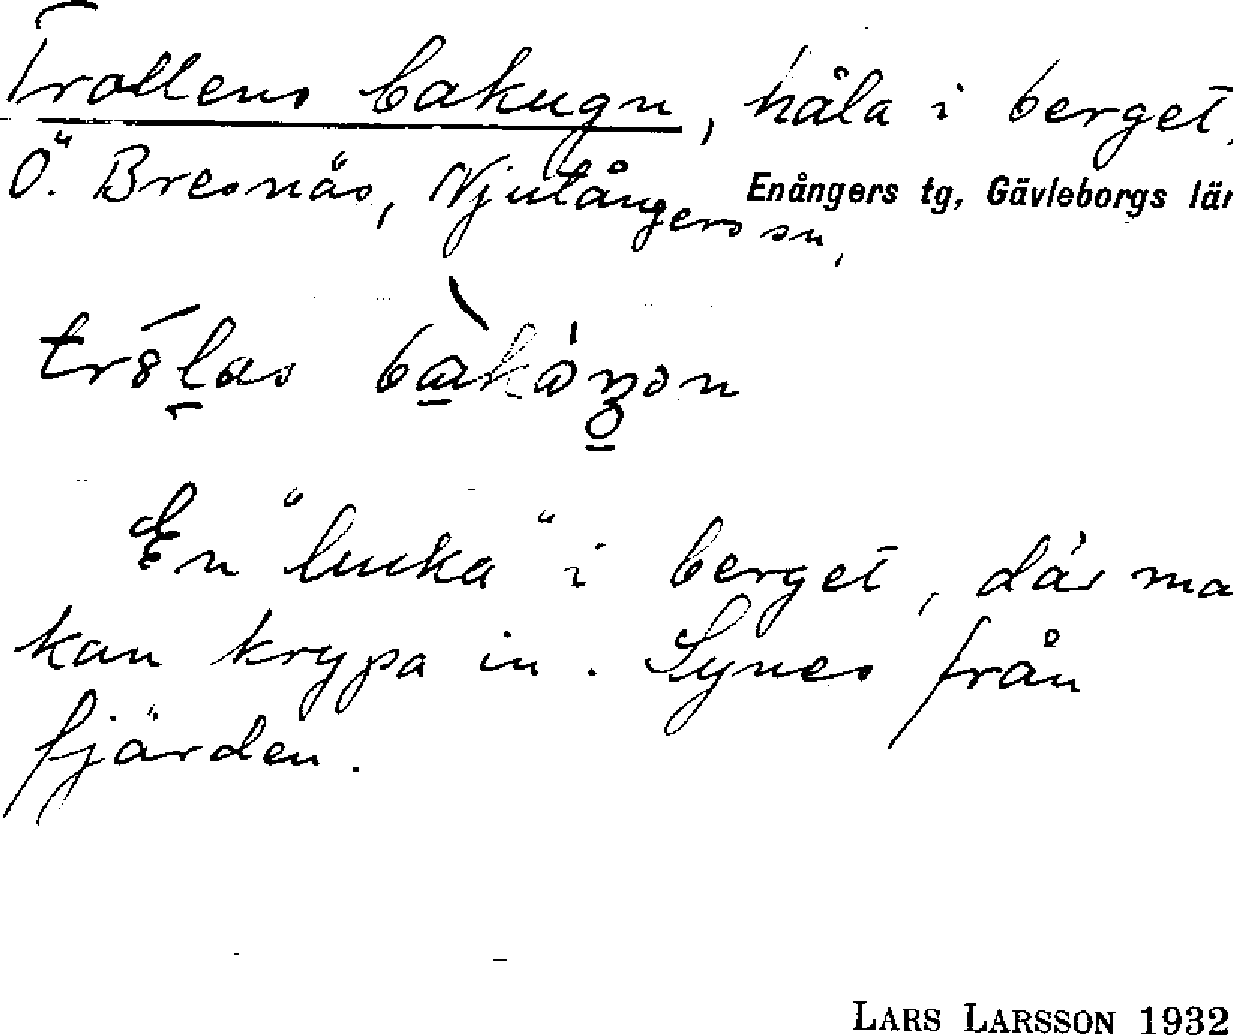 Trollens bakugn, håla i berget,
Ö. Bresnäs, Njutångers sn, Enångers tg, Gävleborgs län
En "lucka" i berget, där ma
kan krypa in. Synes från
fjärden.
LARS LARSSON 1932